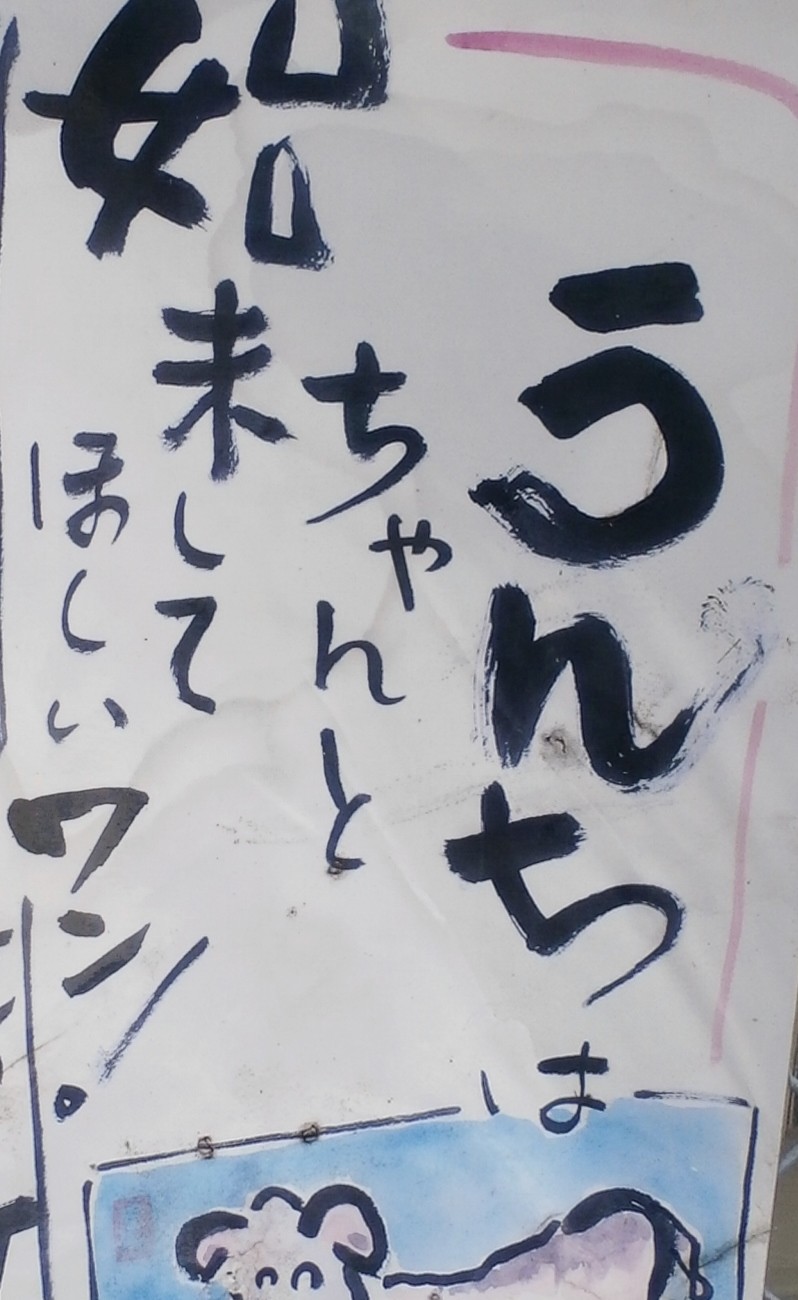 うんちは
ちゃんと
始末して
ほしいワン!